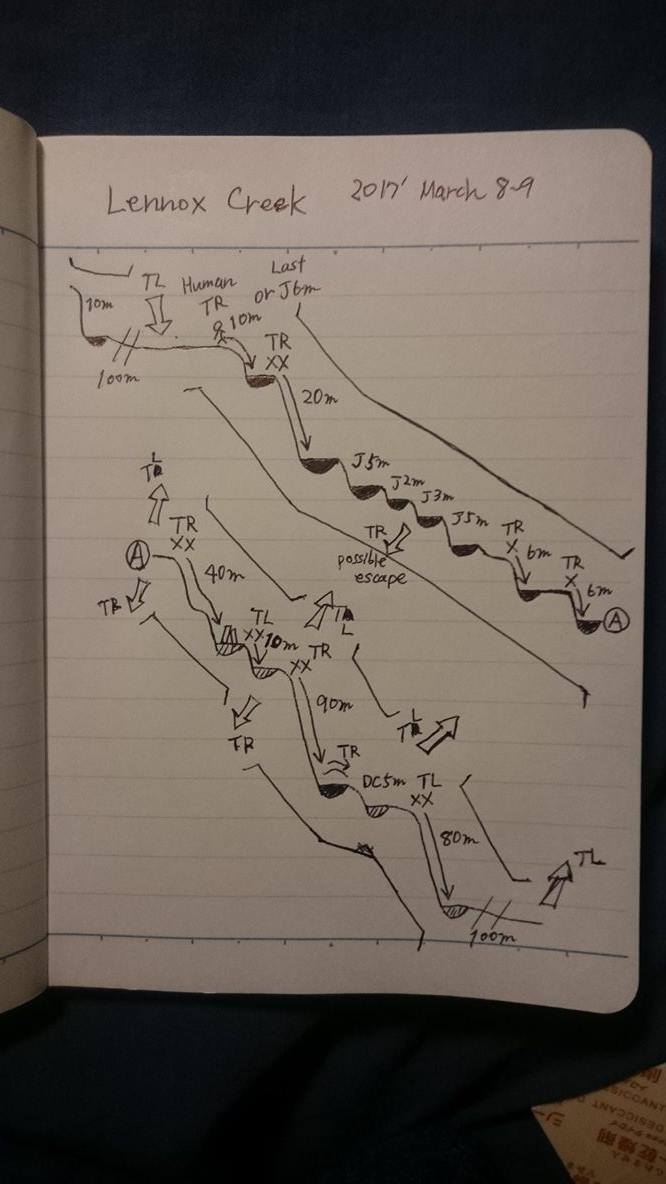 Lennox Creek 2017' March 8-9
10m
TL
Human
TR
10m
Last
or J6m
100m
TR
XX
20m
J5m
J2m
J3m
J5m
TR
possible
escape
TR
X
6m
TR
X
6m
A
L
TR
XX
A
40m
TR
TL
XX
10m
L
TR
XX
90m
TR
L
TR
DC5m
TL
XX
80m
TL
100m
DESICCANT
乾燥剤